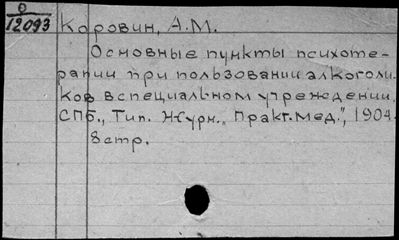 0
12093
Коровин, А.М.
Основные пункты психоте-
рапии при пользовании алкоголи-
ков в специальном учреждении.
СПб., Тип. Журн. „Практ. мед.", 1904.
8 стр.